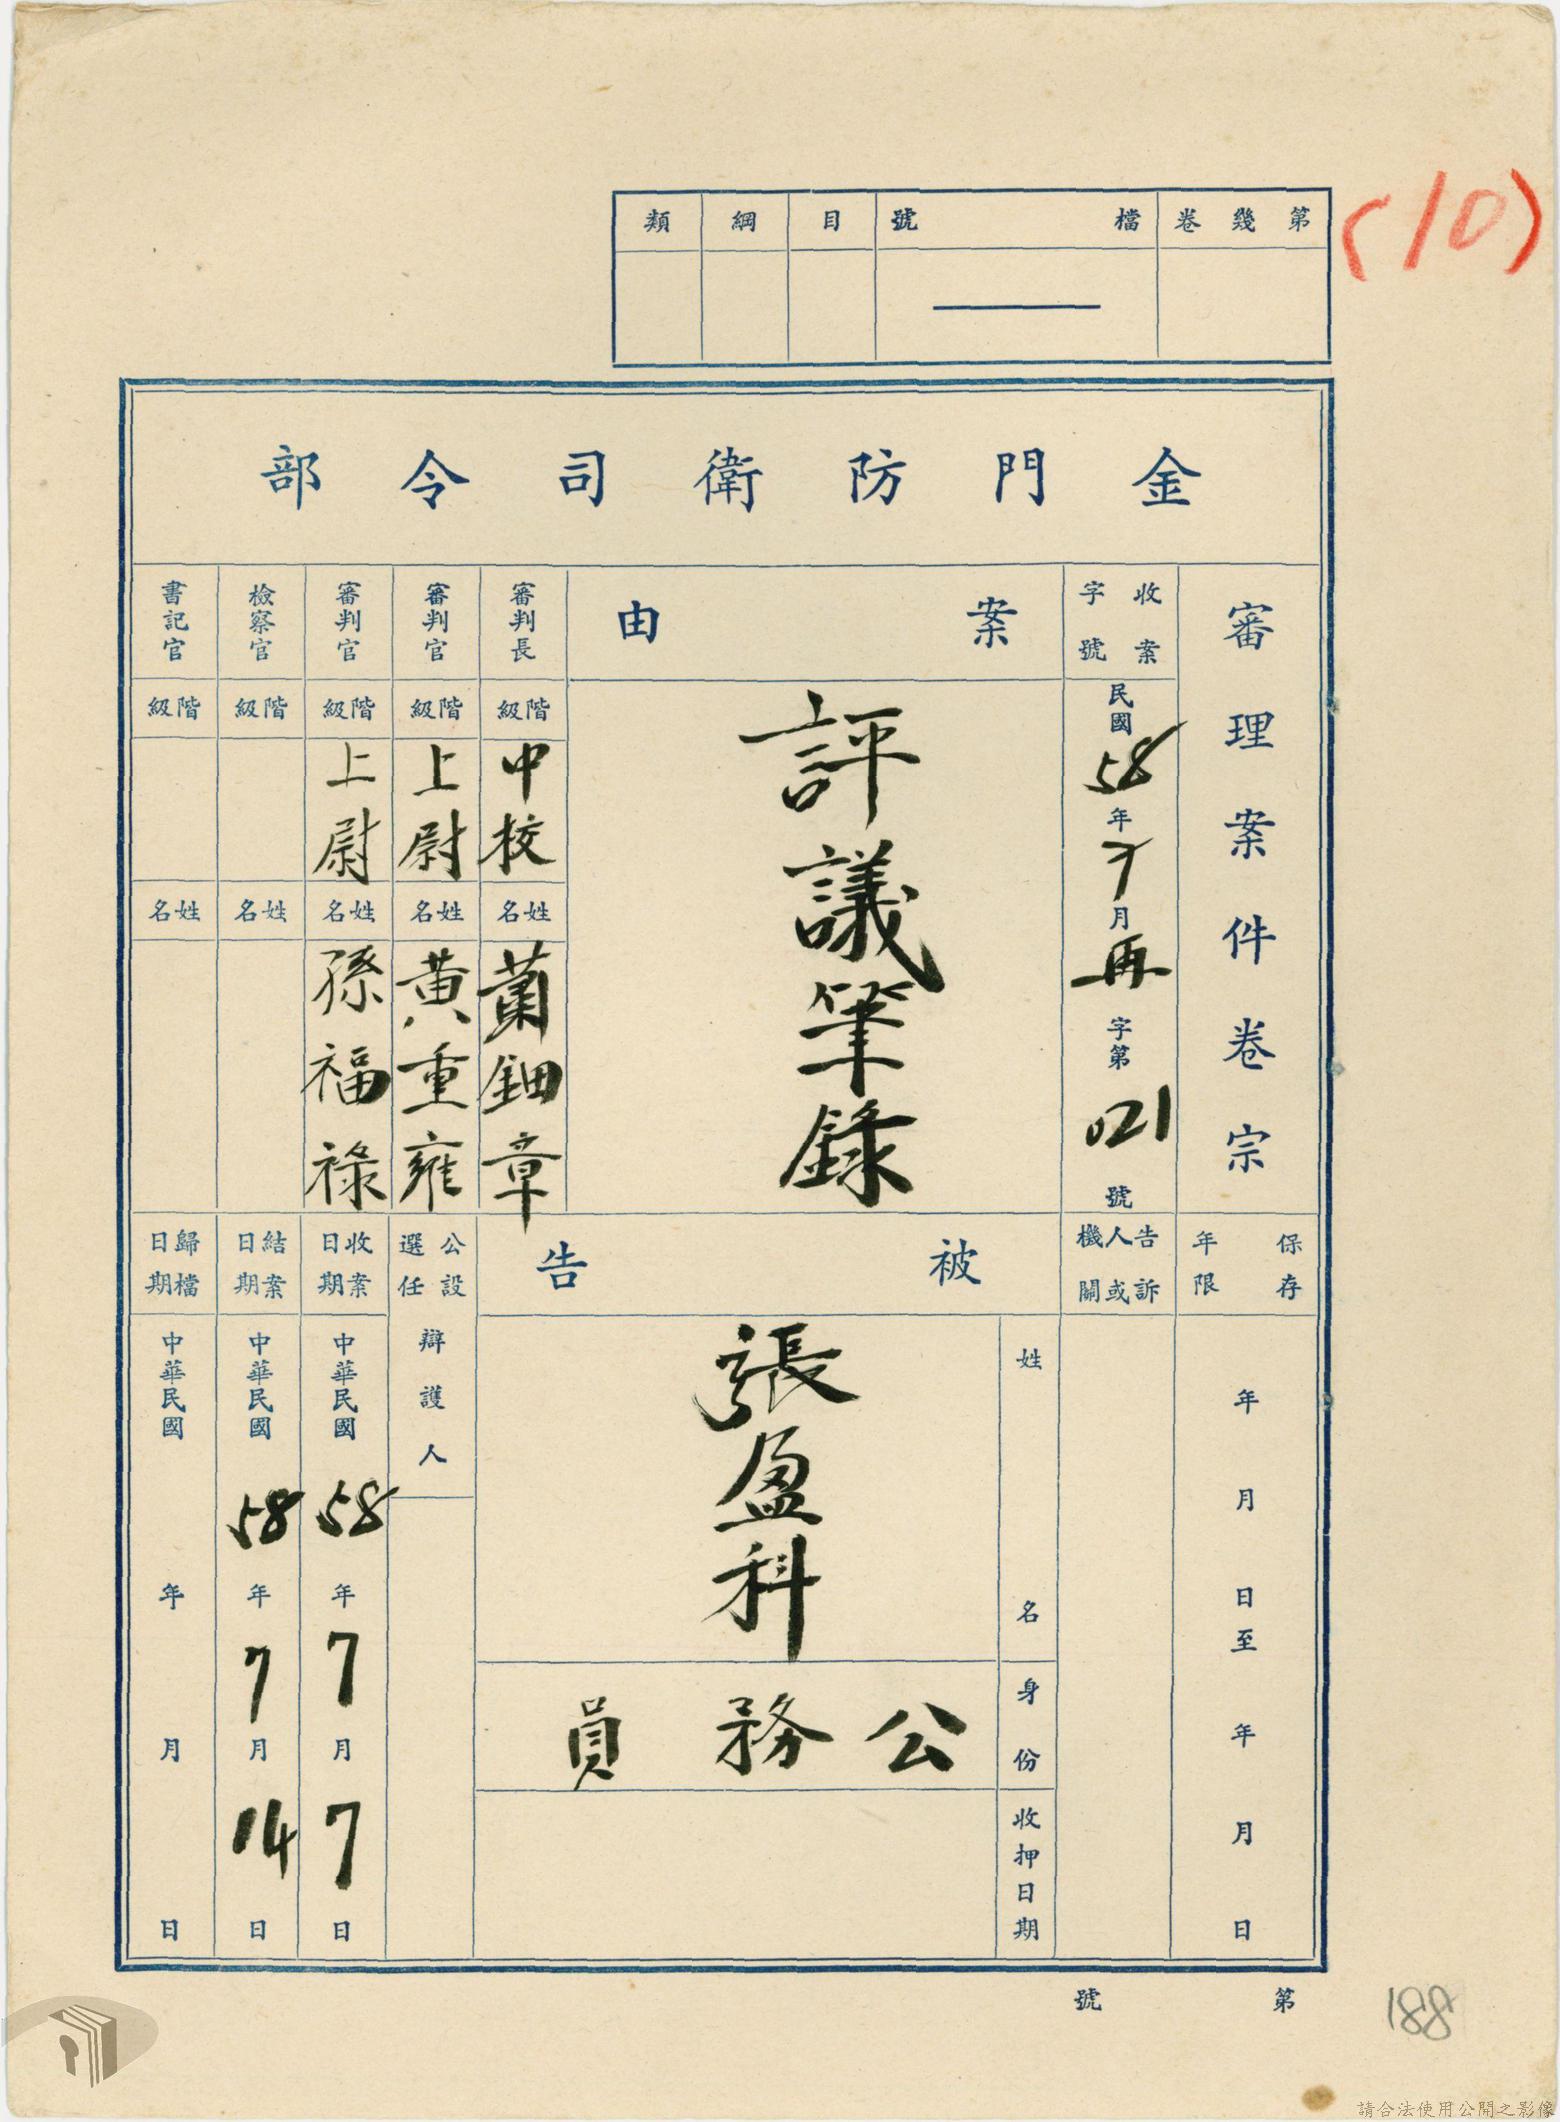 (10)
第幾卷
檔號
目
綱
類
金門防衛司令部
審理案件卷宗
收案字號
民國58年7月再字第021號
案由
評議筆錄
審判長
階級
中校
姓名
蕭鈿章
審判官
階級
上尉
姓名
黃重雍
審判官
階級
上尉
姓名
孫福祿
檢察官
階級
姓名
書記官
階級
姓名
保存年限
年月日至年月日
告訴人或機關
被告
姓名
張盈科
身份
公務員
收押日期
公設選任辯護人
收案日期
中華民國58年7月7日
結案日期
中華民國58年7月14日
歸檔日期
中華民國年月日
第號
188
請合法使用公開之影像